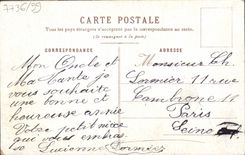 7736/99
CARTE POSTALE
Tous les pays étrangers n'acceptent pas la correspondance au recto.
(Se renseigner à la poste)
CORRESPONDANCE
ADRESSE
Mon Oncle et
Ma Tante je
vous souhaite
une bonne et
heureuse année
Votre petite nièce
qui vous embrasse
Lucienne
Monsieur Ch.
11 rue
Cambronne
Paris
Seine